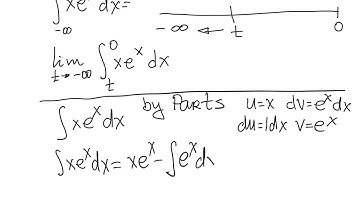 ∫_{-∞} xe^x dx =
-∞ ← t 0
lim_{t→-∞} ∫_t^0 xe^x dx
∫xe^x dx by Parts u=x dv=e^x dx
du=1dx v=e^x
∫xe^x dx = xe^x - ∫e^x dx